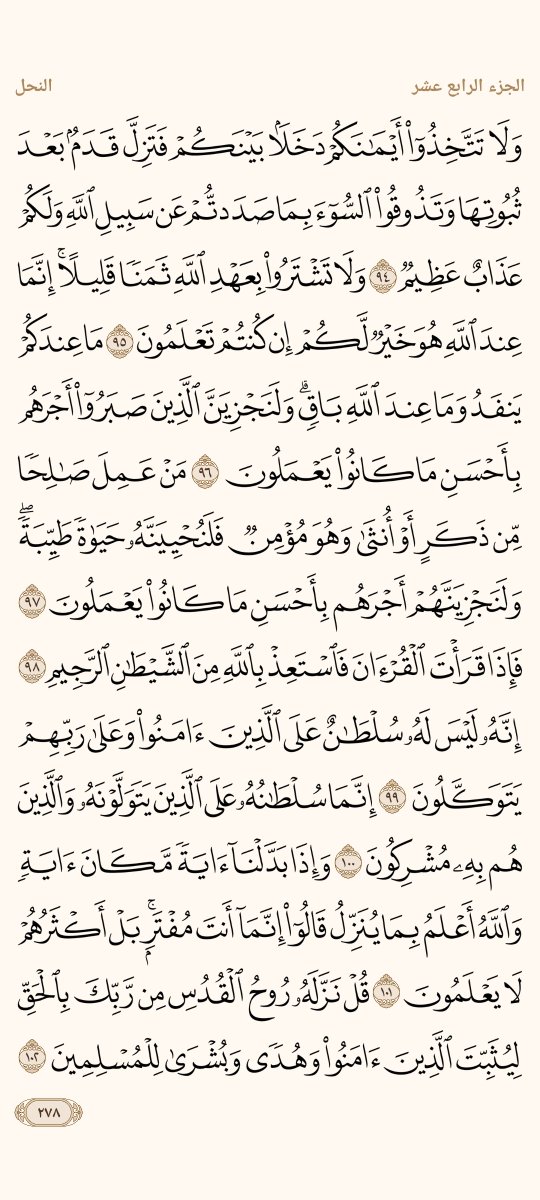 الجزء الرابع عشر
النحل
وَلَا تَتَّخِذُوٓا۟ أَيْمَـٰنَكُمْ دَخَلًۢا بَيْنَكُمْ فَتَزِلَّ قَدَمٌۢ بَعْدَ
ثُبُوتِهَا وَتَذُوقُوا۟ ٱلسُّوٓءَ بِمَا صَدَدتُّمْ عَن سَبِيلِ ٱللَّهِ وَلَكُمْ
عَذَابٌ عَظِيمٌ ٩٤ وَلَا تَشْتَرُوا۟ بِعَهْدِ ٱللَّهِ ثَمَنًا قَلِيلًا ۚ إِنَّمَا
عِندَ ٱللَّهِ هُوَ خَيْرٌ لَّكُمْ إِن كُنتُمْ تَعْلَمُونَ ٩٥ مَا عِندَكُمْ
يَنفَدُ وَمَا عِندَ ٱللَّهِ بَاقٍ ۗ وَلَنَجْزِيَنَّ ٱلَّذِينَ صَبَرُوٓا۟ أَجْرَهُم
بِأَحْسَنِ مَا كَانُوا۟ يَعْمَلُونَ ٩٦ مَنْ عَمِلَ صَـٰلِحًا
مِّن ذَكَرٍ أَوْ أُنثَىٰ وَهُوَ مُؤْمِنٌ فَلَنُحْيِيَنَّهُۥ حَيَوٰةً طَيِّبَةً ۖ
وَلَنَجْزِيَنَّهُمْ أَجْرَهُم بِأَحْسَنِ مَا كَانُوا۟ يَعْمَلُونَ ٩٧
فَإِذَا قَرَأْتَ ٱلْقُرْءَانَ فَٱسْتَعِذْ بِٱللَّهِ مِنَ ٱلشَّيْطَـٰنِ ٱلرَّجِيمِ ٩٨
إِنَّهُۥ لَيْسَ لَهُۥ سُلْطَـٰنٌ عَلَى ٱلَّذِينَ ءَامَنُوا۟ وَعَلَىٰ رَبِّهِمْ
يَتَوَكَّلُونَ ٩٩ إِنَّمَا سُلْطَـٰنُهُۥ عَلَى ٱلَّذِينَ يَتَوَلَّوْنَهُۥ وَٱلَّذِينَ
هُم بِهِۦ مُشْرِكُونَ ١٠٠ وَإِذَا بَدَّلْنَآ ءَايَةً مَّكَانَ ءَايَةٍ
وَٱللَّهُ أَعْلَمُ بِمَا يُنَزِّلُ قَالُوٓا۟ إِنَّمَآ أَنتَ مُفْتَرٍۭ ۚ بَلْ أَكْثَرُهُمْ
لَا يَعْلَمُونَ ١٠١ قُلْ نَزَّلَهُۥ رُوحُ ٱلْقُدُسِ مِن رَّبِّكَ بِٱلْحَقِّ
لِيُثَبِّتَ ٱلَّذِينَ ءَامَنُوا۟ وَهُدًى وَبُشْرَىٰ لِلْمُسْلِمِينَ ١٠٢
٢٧٨